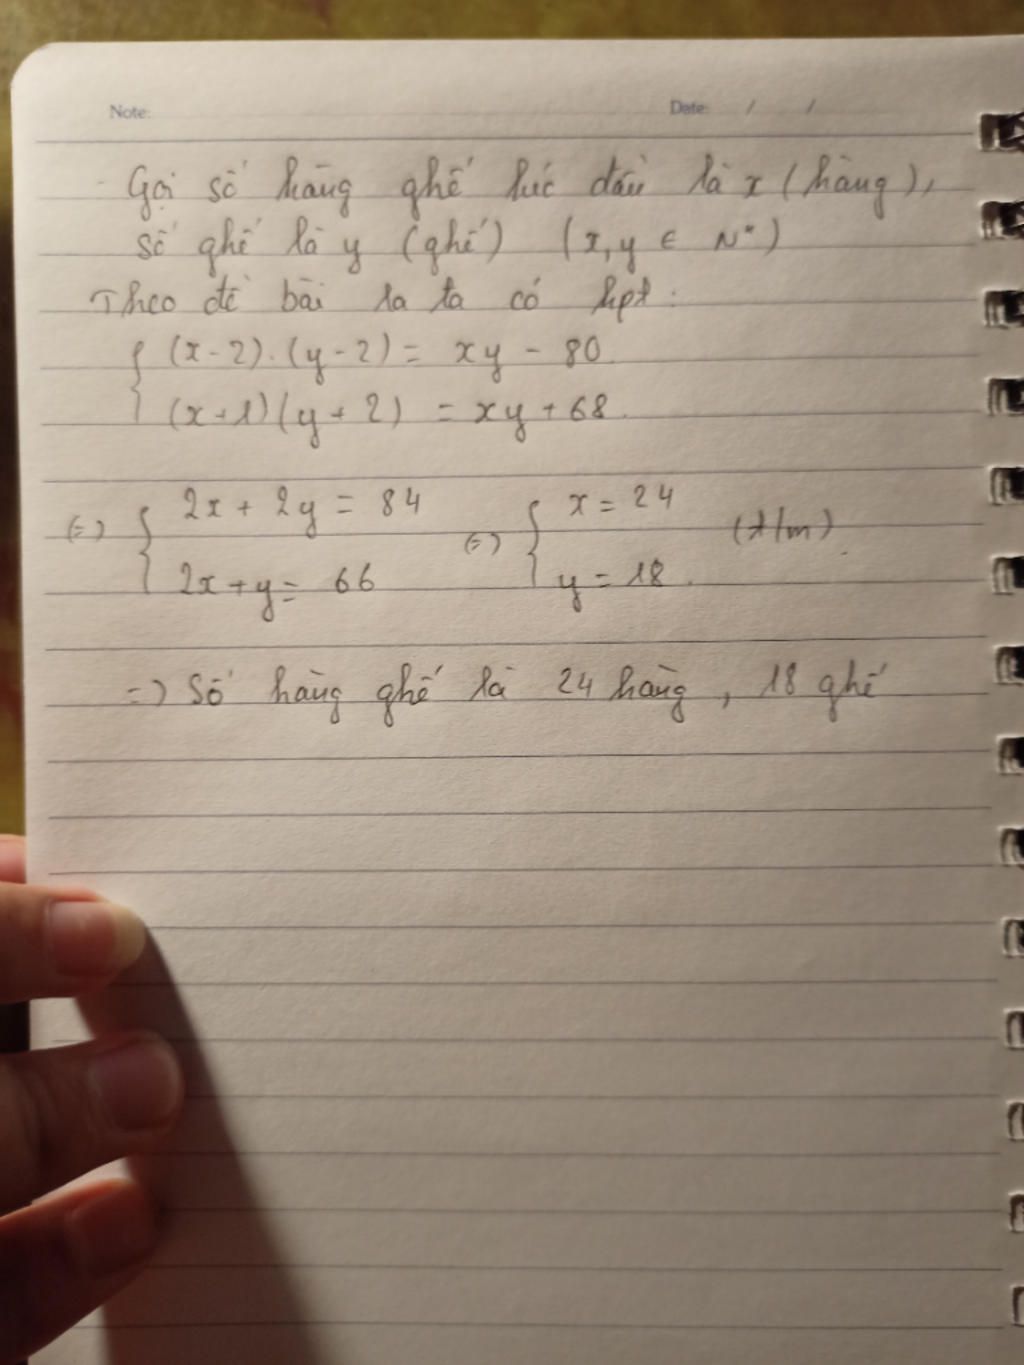 Note: Date: / /
- Gọi số hàng ghế lúc đầu là x (hàng),
số ghế là y (ghế) (x, y ∈ N*)
Theo đề bài ra ta có hpt:
{ (x-2).(y-2) = xy - 80
(x+1)(y+2) = xy + 68.
(=) { 2x + 2y = 84 (=) { x = 24 (t/m).
2x + y = 66 y = 18.
=) Số hàng ghế là 24 hàng, 18 ghế